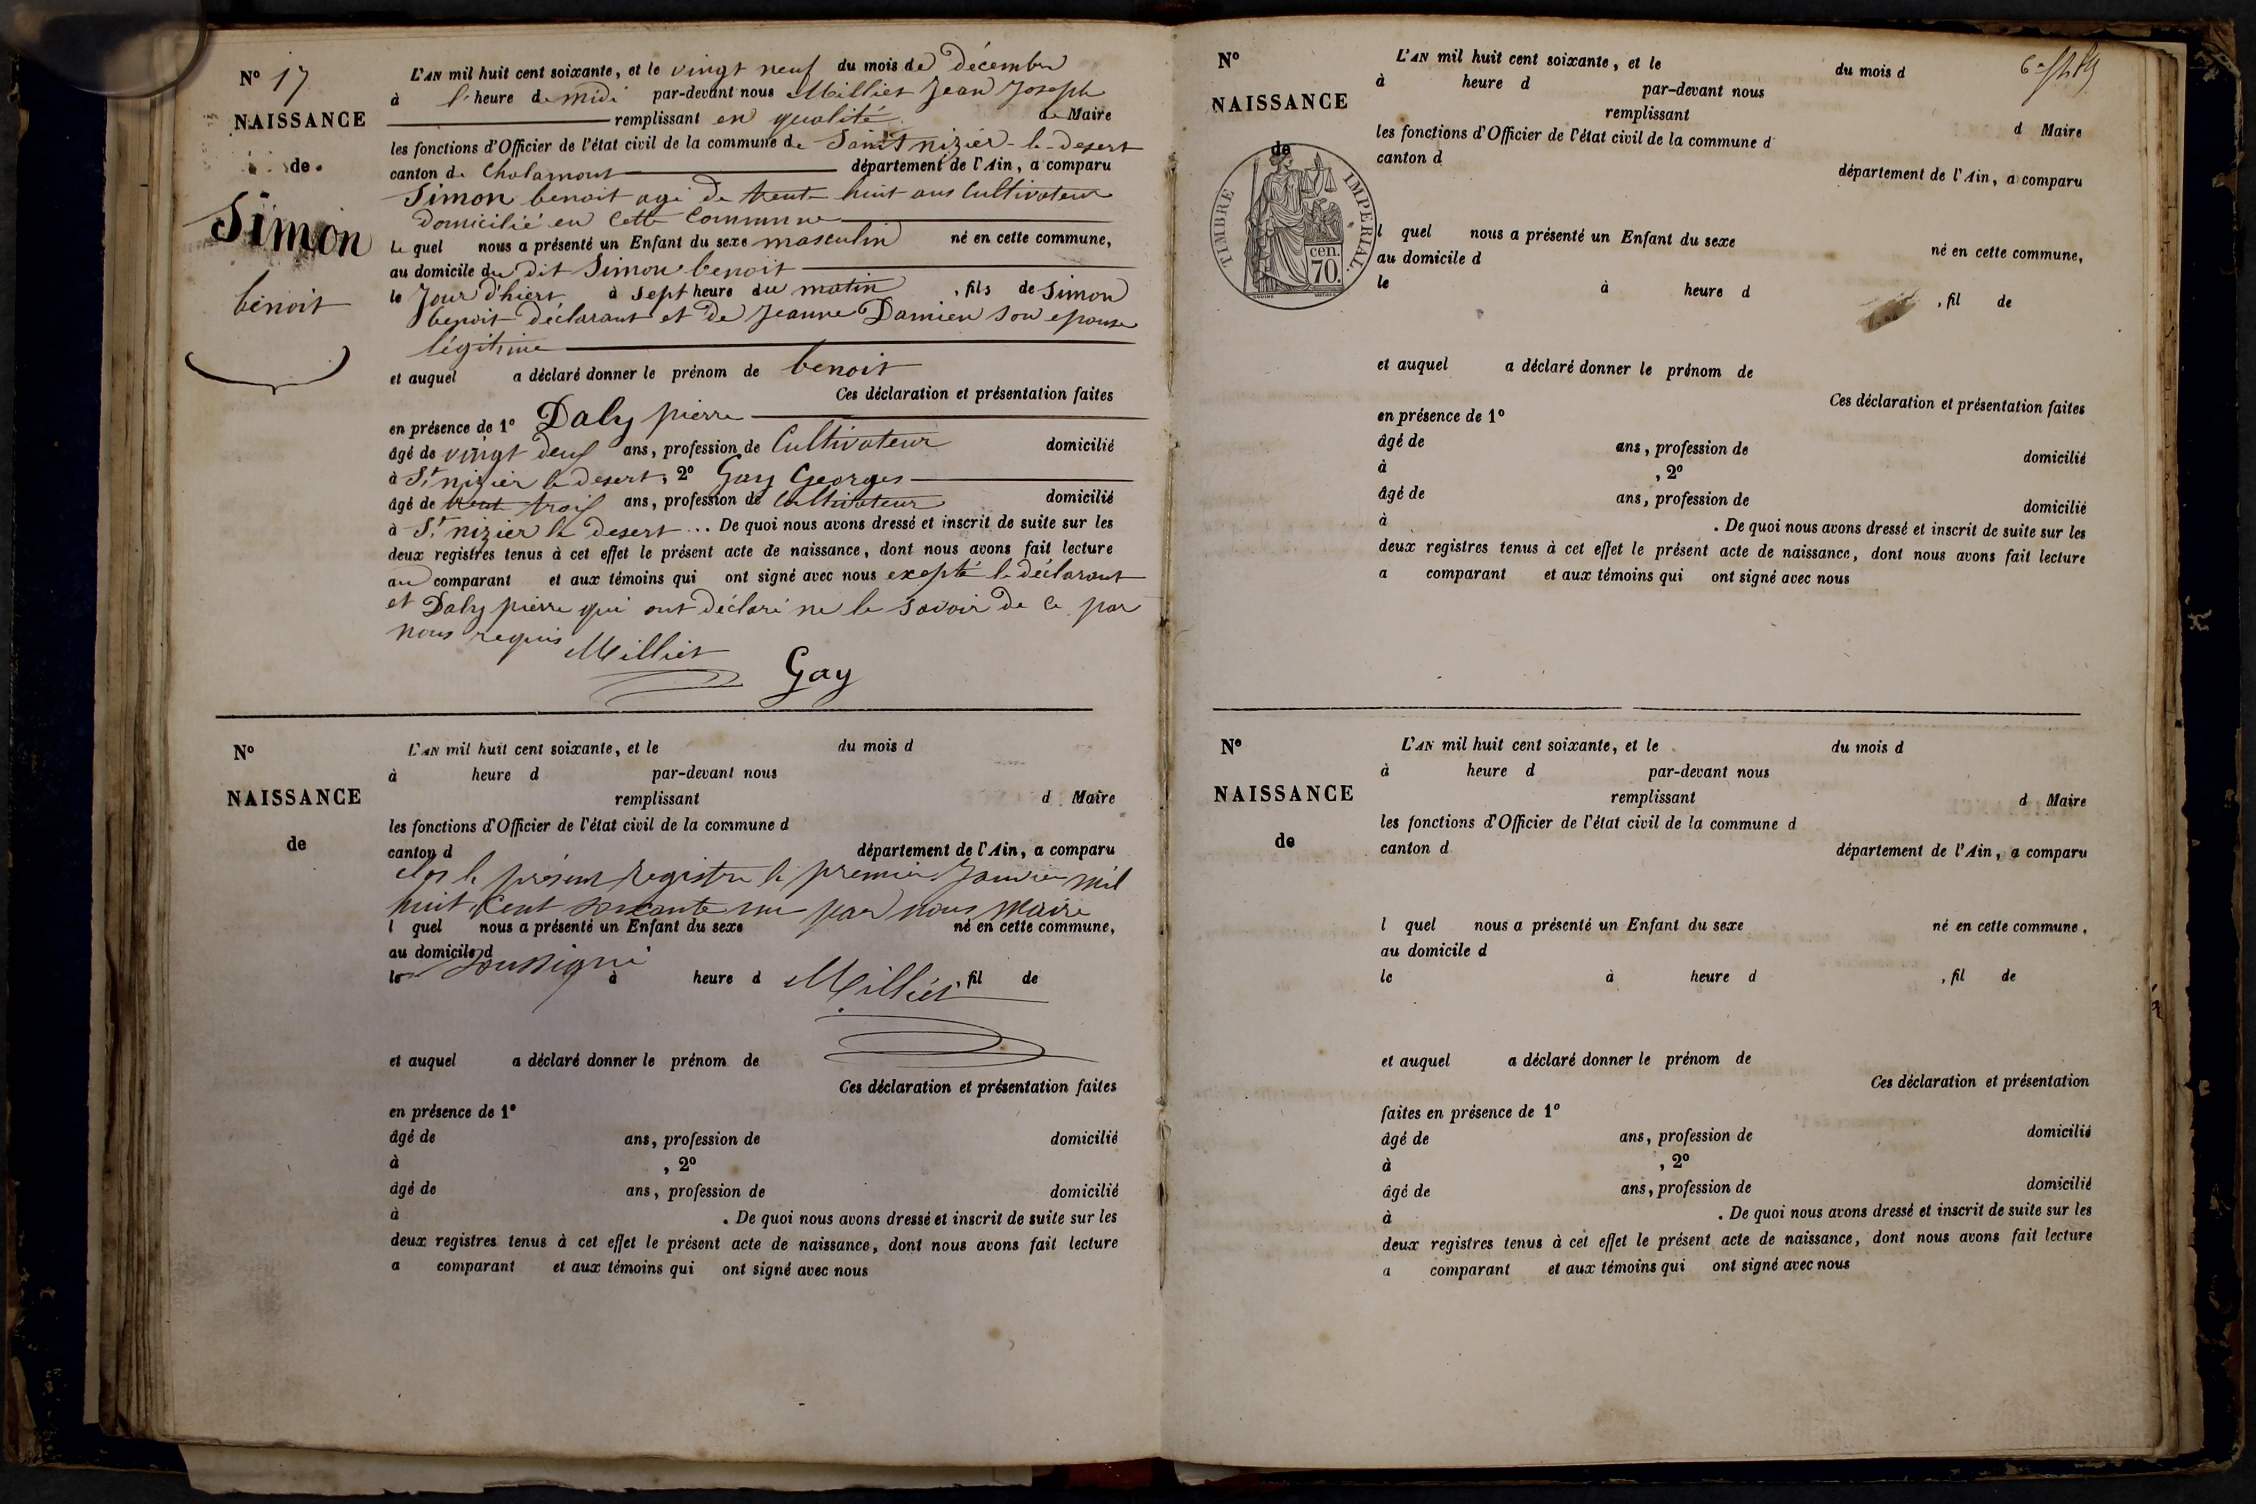 N° 17
NAISSANCE
de
Simon
benoit
L'AN mil huit cent soixante, et le vingt neuf du mois de décembre
à l'heure de midi par-devant nous Milliet Jean Joseph
remplissant en qualité de Maire
les fonctions d'Officier de l'état civil de la commune de Saint nizier-le-desert
canton de Chalamont département de l'Ain, a comparu
Simon benoit agé de trente huit ans Cultivateur
domicilié en Cette Commune
Le quel nous a présenté un Enfant du sexe masculin né en cette commune,
au domicile du dit Simon benoit
le Jour d'hiert à Sept heure du matin, fils de Simon
benoit déclarant et de Jeanne Damien Son epouse
légitime
et auquel a déclaré donner le prénom de benoit
Ces déclaration et présentation faites
en présence de 1° Daly pierre
âgé de vingt deux ans, profession de Cultivateur domicilié
à St nizier le desert, 2° Gay Georges
âgé de trente trois ans, profession de Cultivateur domicilié
à St nizier le desert... De quoi nous avons dressé et inscrit de suite sur les
deux registres tenus à cet effet le présent acte de naissance, dont nous avons fait lecture
au comparant et aux témoins qui ont signé avec nous excepté le déclarant
et Daly pierre qui ont déclaré ne le Savoir de Ce par
nous requis Milliet
Gay
N°
NAISSANCE
de
L'AN mil huit cent soixante, et le du mois d
à heure d par-devant nous
remplissant d Maire
les fonctions d'Officier de l'état civil de la commune d
canton d département de l'Ain, a comparu
clos le présent registre le premier Janvier mil
huit Cent soixante un par nous Maire
l quel nous a présenté un Enfant du sexe né en cette commune,
au domicile d
soussigné
le à heure d Milliet, fil de
et auquel a déclaré donner le prénom de
Ces déclaration et présentation faites
en présence de 1°
âgé de ans, profession de domicilié
à , 2°
âgé de ans, profession de domicilié
à . De quoi nous avons dressé et inscrit de suite sur les
deux registres tenus à cet effet le présent acte de naissance, dont nous avons fait lecture
a comparant et aux témoins qui ont signé avec nous
N°
NAISSANCE
de
TIMBRE IMPERIAL.
cen.
70.
L'AN mil huit cent soixante, et le du mois d
à heure d par-devant nous
remplissant
d Maire
les fonctions d'Officier de l'état civil de la commune d
canton d département de l'Ain, a comparu
l quel nous a présenté un Enfant du sexe né en cette commune,
au domicile d
le à heure d , fil de
et auquel a déclaré donner le prénom de
Ces déclaration et présentation faites
en présence de 1°
âgé de ans, profession de domicilié
à , 2°
âgé de ans, profession de domicilié
à . De quoi nous avons dressé et inscrit de suite sur les
deux registres tenus à cet effet le présent acte de naissance, dont nous avons fait lecture
a comparant et aux témoins qui ont signé avec nous
N°
NAISSANCE
de
L'AN mil huit cent soixante, et le du mois d
à heure d par-devant nous
remplissant d Maire
les fonctions d'Officier de l'état civil de la commune d
canton d département de l'Ain, a comparu
l quel nous a présenté un Enfant du sexe né en cette commune,
au domicile d
le à heure d , fil de
et auquel a déclaré donner le prénom de
Ces déclaration et présentation
faites en présence de 1°
âgé de ans, profession de domicilié
à , 2°
âgé de ans, profession de domicilié
à . De quoi nous avons dressé et inscrit de suite sur les
deux registres tenus à cet effet le présent acte de naissance, dont nous avons fait lecture
a comparant et aux témoins qui ont signé avec nous